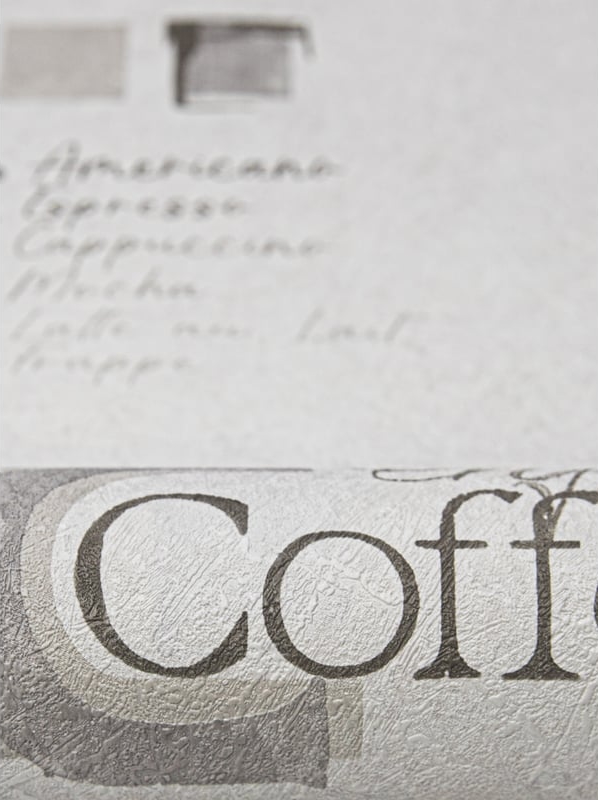 Americano
Espresso
Cappuccino
Mocha
Latte au Lait
frappe
Coff